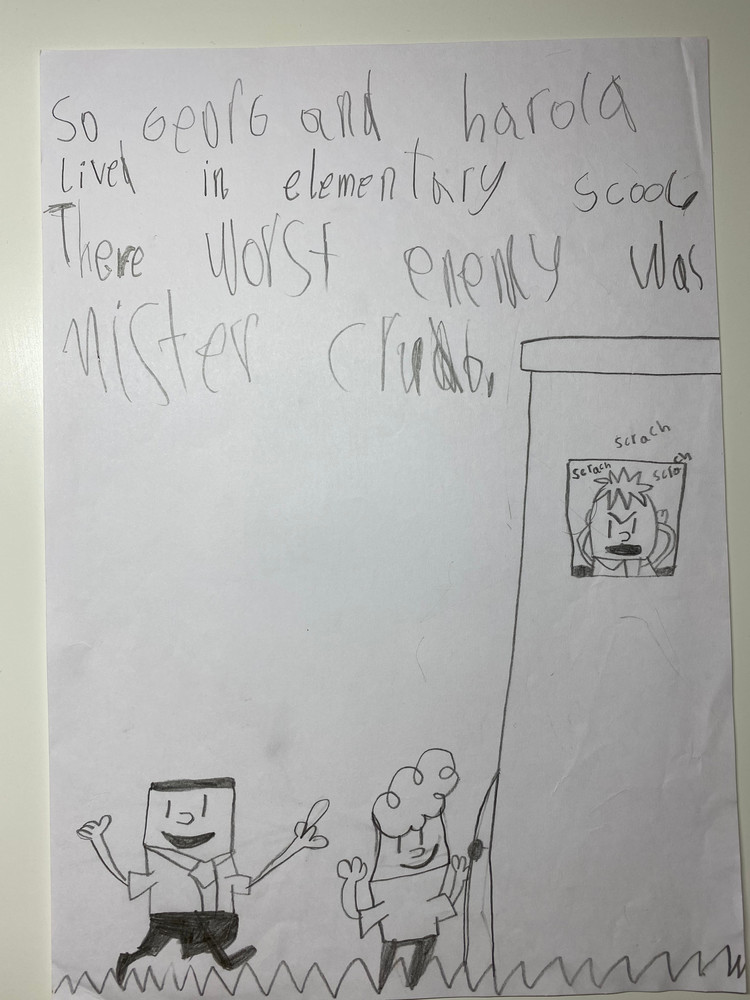 So georg and harold
Lived in elementary scool
There worst enemy was
Mister crubb.
scrach
scrach
scrach